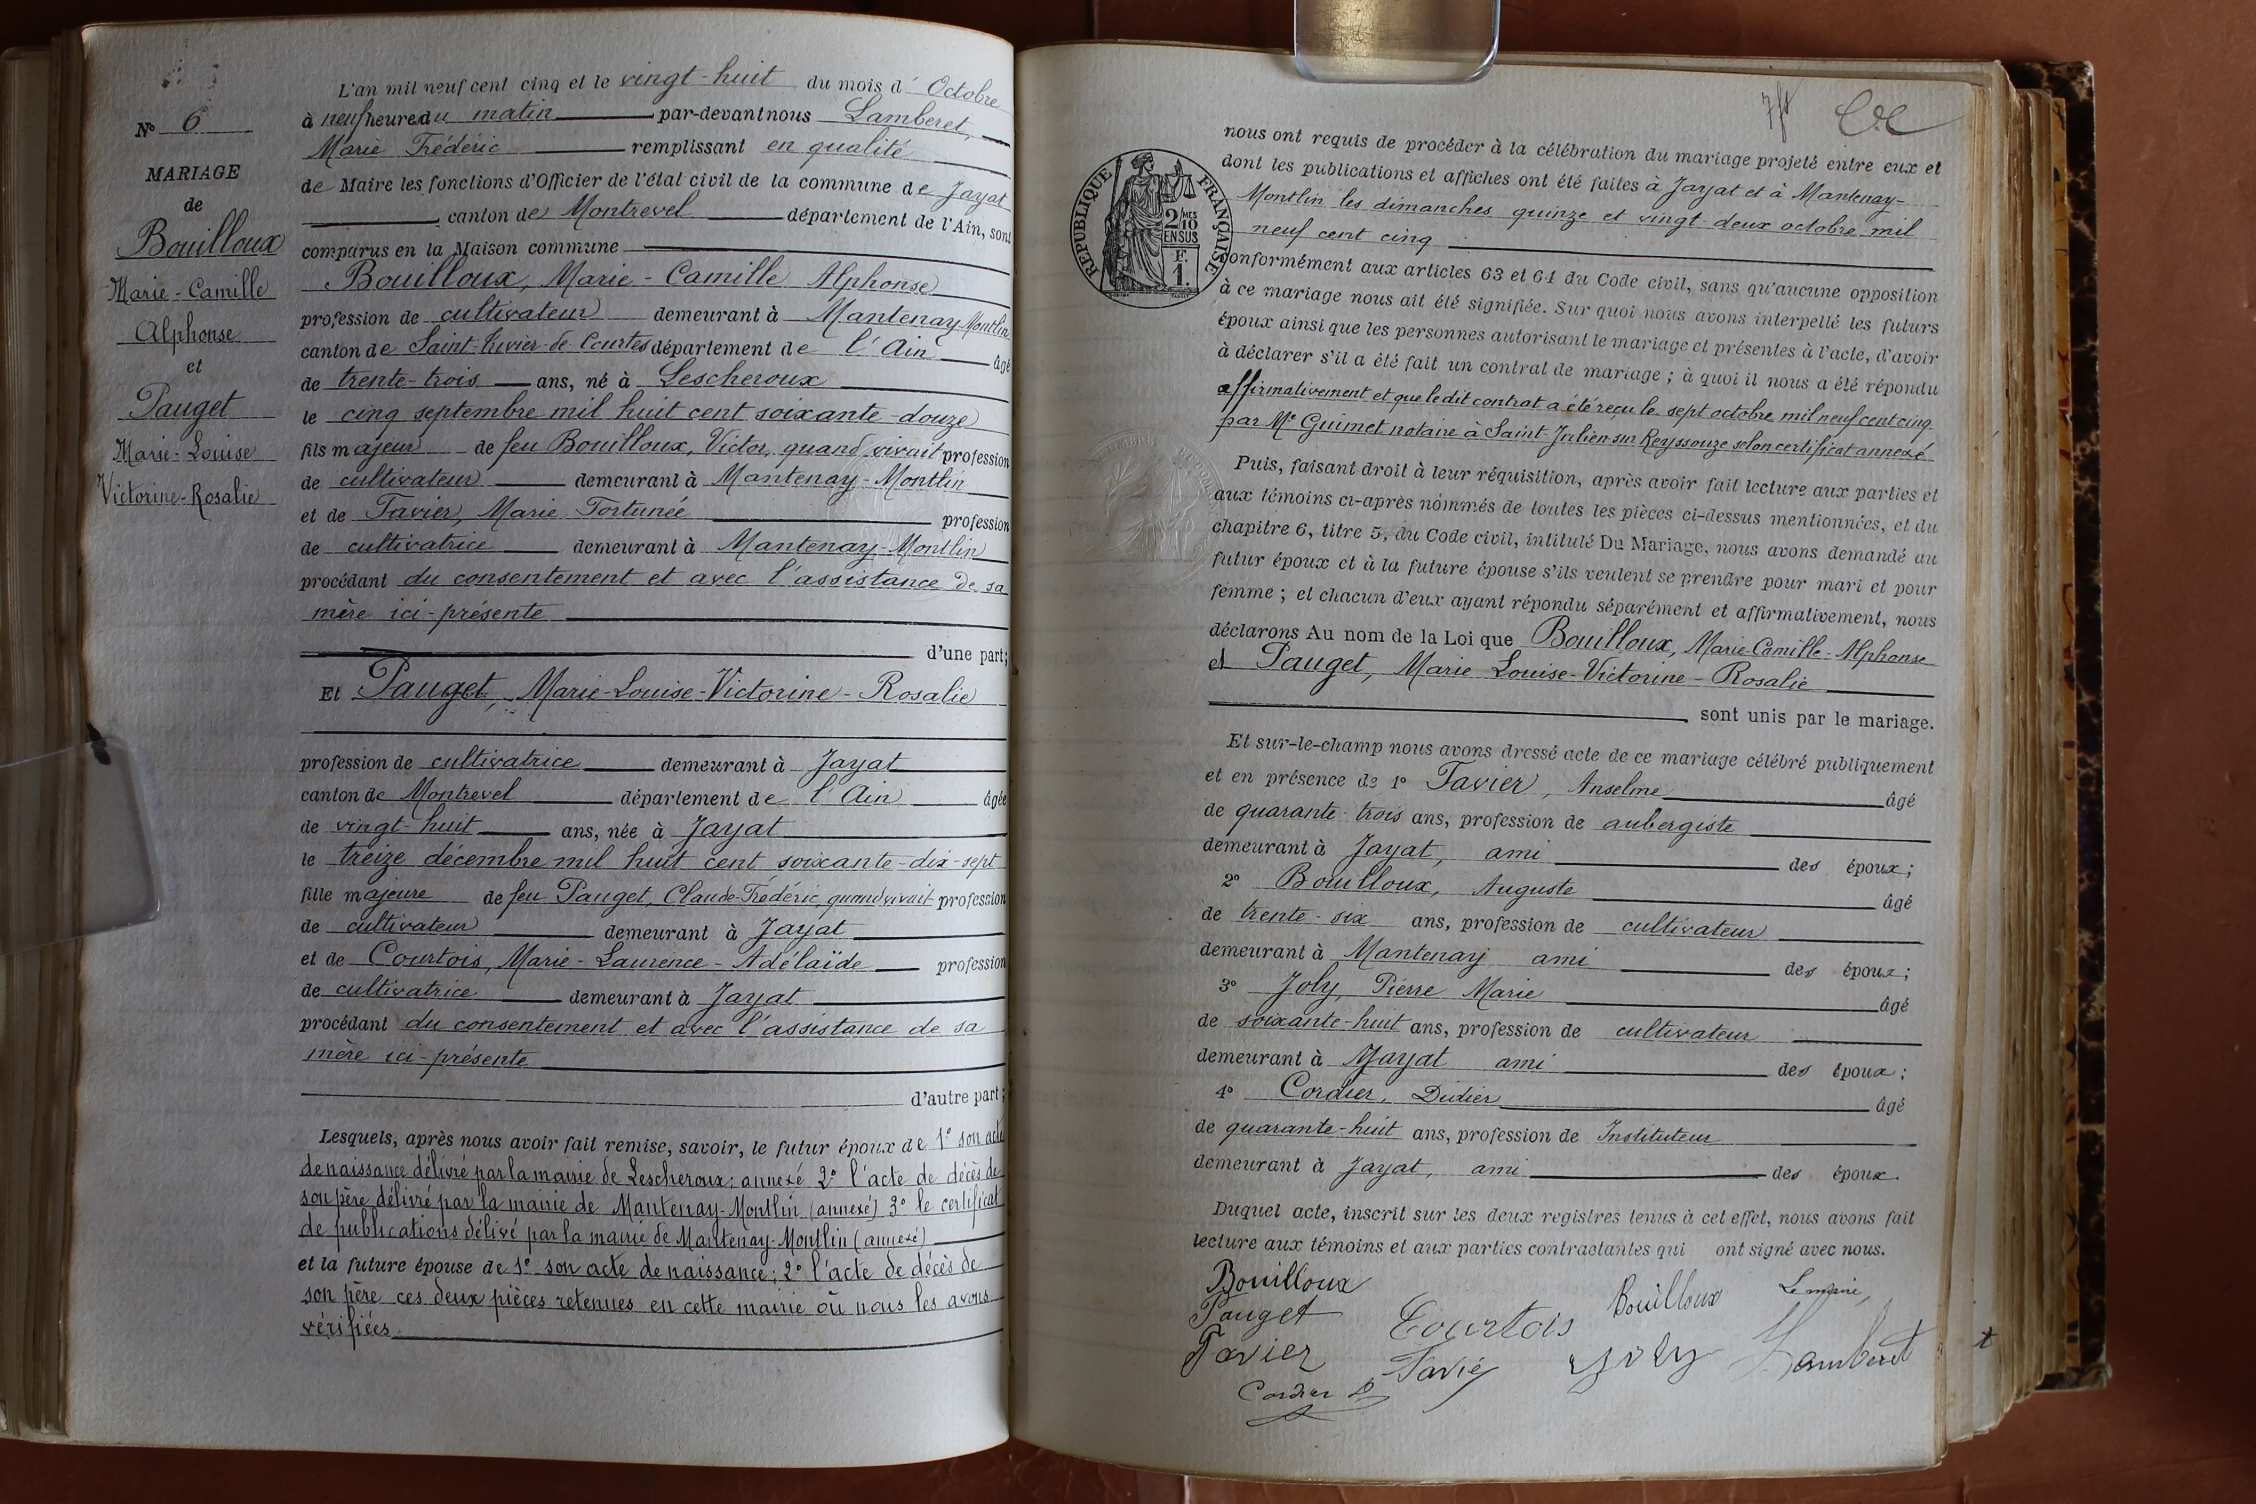 N° 6
MARIAGE
de
Bouilloux
Marie-Camille
Alphonse
et
Pauget
Marie-Louise
Victorine-Rosalie
L'an mil neuf cent cinq et le vingt-huit du mois d' Octobre
à neuf heure du matin par-devant nous Lamberet,
Marie Frédéric remplissant en qualité
de Maire les fonctions d'Officier de l'état civil de la commune de Jayat
canton de Montrevel département de l'Ain, sont
comparus en la Maison commune
Bouilloux, Marie-Camille Alphonse
profession de cultivateur demeurant à Mantenay Montlin
canton de Saint-Trivier-de Courtes département de l'Ain âgé
de trente-trois ans, né à Lescheroux
le cinq septembre mil huit cent soixante-douze
fils majeur de feu Bouilloux, Victor, quand vivait profession
de cultivateur demeurant à Mantenay-Montlin
et de Favier, Marie Fortunée profession
de cultivatrice demeurant à Mantenay-Montlin
procédant du consentement et avec l'assistance de sa
mère ici-présente
d'une part;
Et Pauget, Marie-Louise-Victorine-Rosalie
profession de cultivatrice demeurant à Jayat
canton de Montrevel département de l'Ain âgée
de vingt-huit ans, née à Jayat
le treize décembre mil huit cent soixante-dix-sept
fille majeure de feu Pauget, Claude-Frédéric, quand vivait profession
de cultivateur demeurant à Jayat
et de Courtois, Marie-Laurence-Adélaïde profession
de cultivatrice demeurant à Jayat
procédant du consentement et avec l'assistance de sa
mère ici-présente
d'autre part;
Lesquels, après nous avoir fait remise, savoir, le futur époux de 1° son acte
de naissance délivré par la mairie de Lescheroux; annexé 2° l'acte de décès de
son père délivré par la mairie de Mantenay-Montlin (annexé) 3° le certificat
de publications délivé par la mairie de Mantenay-Montlin (annexé)
et la future épouse de 1° son acte de naissance; 2° l'acte de décès de
son père ces deux pièces retenues en cette mairie où nous les avons
vérifiées
RÉPUBLIQUE FRANÇAISE
2/10 MES
EN SUS
F.
1.
nous ont requis de procéder à la célébration du mariage projeté entre eux et
dont les publications et affiches ont été faites à Jayat et à Mantenay-
Montlin les dimanches quinze et vingt-deux octobre mil
neuf cent cinq
conformément aux articles 63 et 64 du Code civil, sans qu'aucune opposition
à ce mariage nous ait été signifiée. Sur quoi nous avons interpellé les futurs
époux ainsi que les personnes autorisant le mariage et présentes à l'acte, d'avoir
à déclarer s'il a été fait un contrat de mariage; à quoi il nous a été répondu
affirmativement et que le dit contrat a été reçu le sept octobre mil neuf cent cinq
par Me Guimet notaire à Saint-Julien sur Reyssouze selon certificat annexé
Puis, faisant droit à leur réquisition, après avoir fait lecture aux parties et
aux témoins ci-après nommés de toutes les pièces ci-dessus mentionnées, et du
chapitre 6, titre 5, du Code civil, intitulé Du Mariage, nous avons demandé au
futur époux et à la future épouse s'ils veulent se prendre pour mari et pour
femme; et chacun d'eux ayant répondu séparément et affirmativement, nous
déclarons Au nom de la Loi que Bouilloux, Marie-Camille-Alphonse
et Pauget, Marie Louise-Victorine-Rosalie
sont unis par le mariage.
Et sur-le-champ nous avons dressé acte de ce mariage célébré publiquement
et en présence de 1° Favier, Anselme âgé
de quarante-trois ans, profession de aubergiste
demeurant à Jayat, ami des époux;
2° Bouilloux, Auguste âgé
de trente-six ans, profession de cultivateur
demeurant à Mantenay ami des époux;
3° Joly, Pierre Marie âgé
de soixante-huit ans, profession de cultivateur
demeurant à Jayat ami des époux;
4° Cordier, Didier âgé
de quarante-huit ans, profession de Instituteur
demeurant à Jayat, ami des époux.
Duquel acte, inscrit sur les deux registres tenus à cet effet, nous avons fait
lecture aux témoins et aux parties contractantes qui ont signé avec nous.
Bouilloux
Pauget Courtois Bouilloux Le maire,
Favier Favier Joly Lamberet
Cordier D